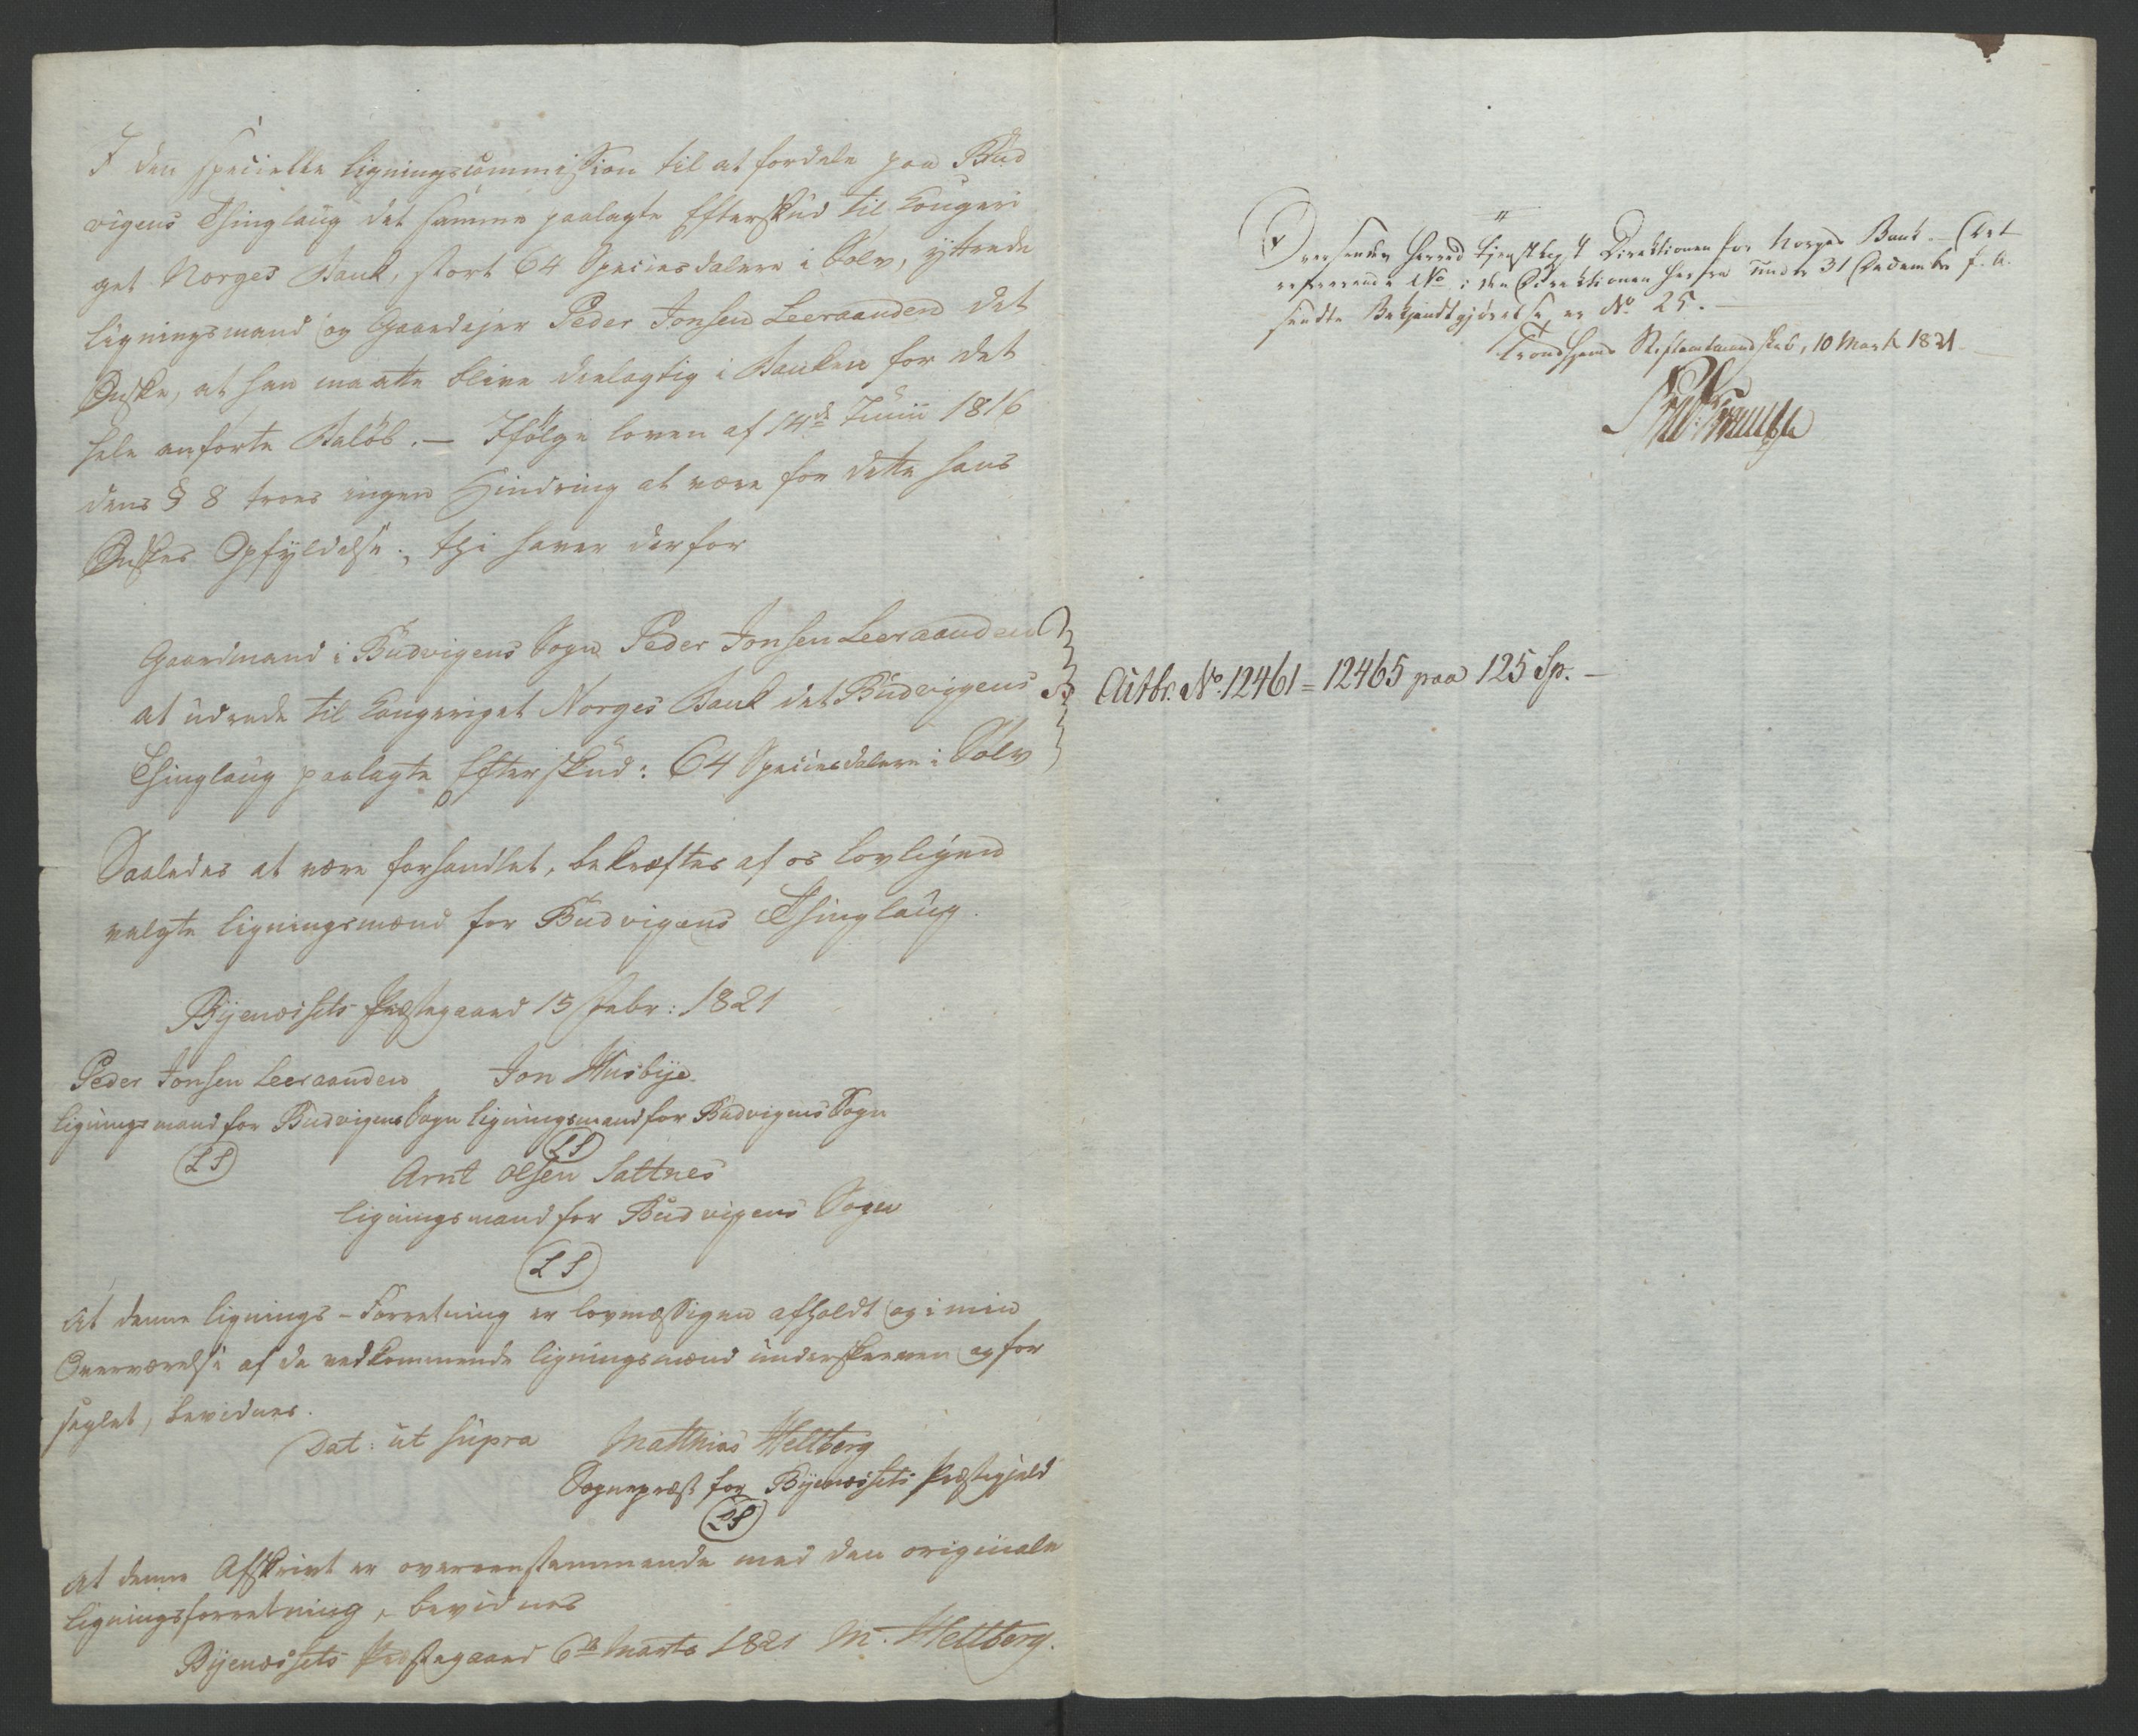 I den specielle Ligningscommission til at fordele paa Bud
vigens Thinglaug det samme paalagte Efterskud til Konger
get Norges Bank, stort 64 Speciesdalere i Sølv, yttrede
Ligningsmand og Gaardejer Peder Jonsen Leeraanden det
Ønske, at han maatte blive deelagtig i Banken for det
hele anførte Beløb. — Ifølge Loven af 14de Junii 1816
dens § 8 troes ingen Hindring at være for dette hans
Ønskes Opfyldelse; thi haver derfor
Gaardmand i Budvigens Sogn Peder Jonsen Leeraanden
at udrede til Kongeriget Norges Bank det Budviggens
Thinglaug paalagte Efterskud: 64 Speciesdalere i Sølv
Saaledes at være forhandlet, bekræftes af os lovligen
valgte Ligningsmænd for Budvigens Thinglaug.
Byenæssets Præstegaard 15 Febr: 1821
Peder Jonsen Leeraanden Jon Husbye
Ligningsmand for Budvigens Sogn Ligningsmand for Budvigens Sogn
LS LS
Arnt Olsen Saltnes
Ligningsmand for Budvigens Sogn
LS
At denne Lignings-Forretning er lovmæssigen afholdt og i min
Overværelse af de vedkommende Ligningsmænd underskreven og for
seglet, bevidnes.
Dat: ut supra Matthias Heltberg
Sognepræst for Byenæssets Præstegjeld
LS
At denne Afskrivt er overeenstemmende med den originale
Ligningsforretning, bevidnes
Byenæssets Præstegaard 6te Marts 1821 M. Heltberg.
Oversendes herved tjenstligst Directionen for Norges Bank. — Det
refererende No i den Directionen herfra under 31 December f. A.
sendte Bekjendtgjørelse er No 25. —
Trondhjems Stiftamtmandskab, 10 Marts 1821
Actbr. No. 12461 = 12465 paa 125 Sp. —